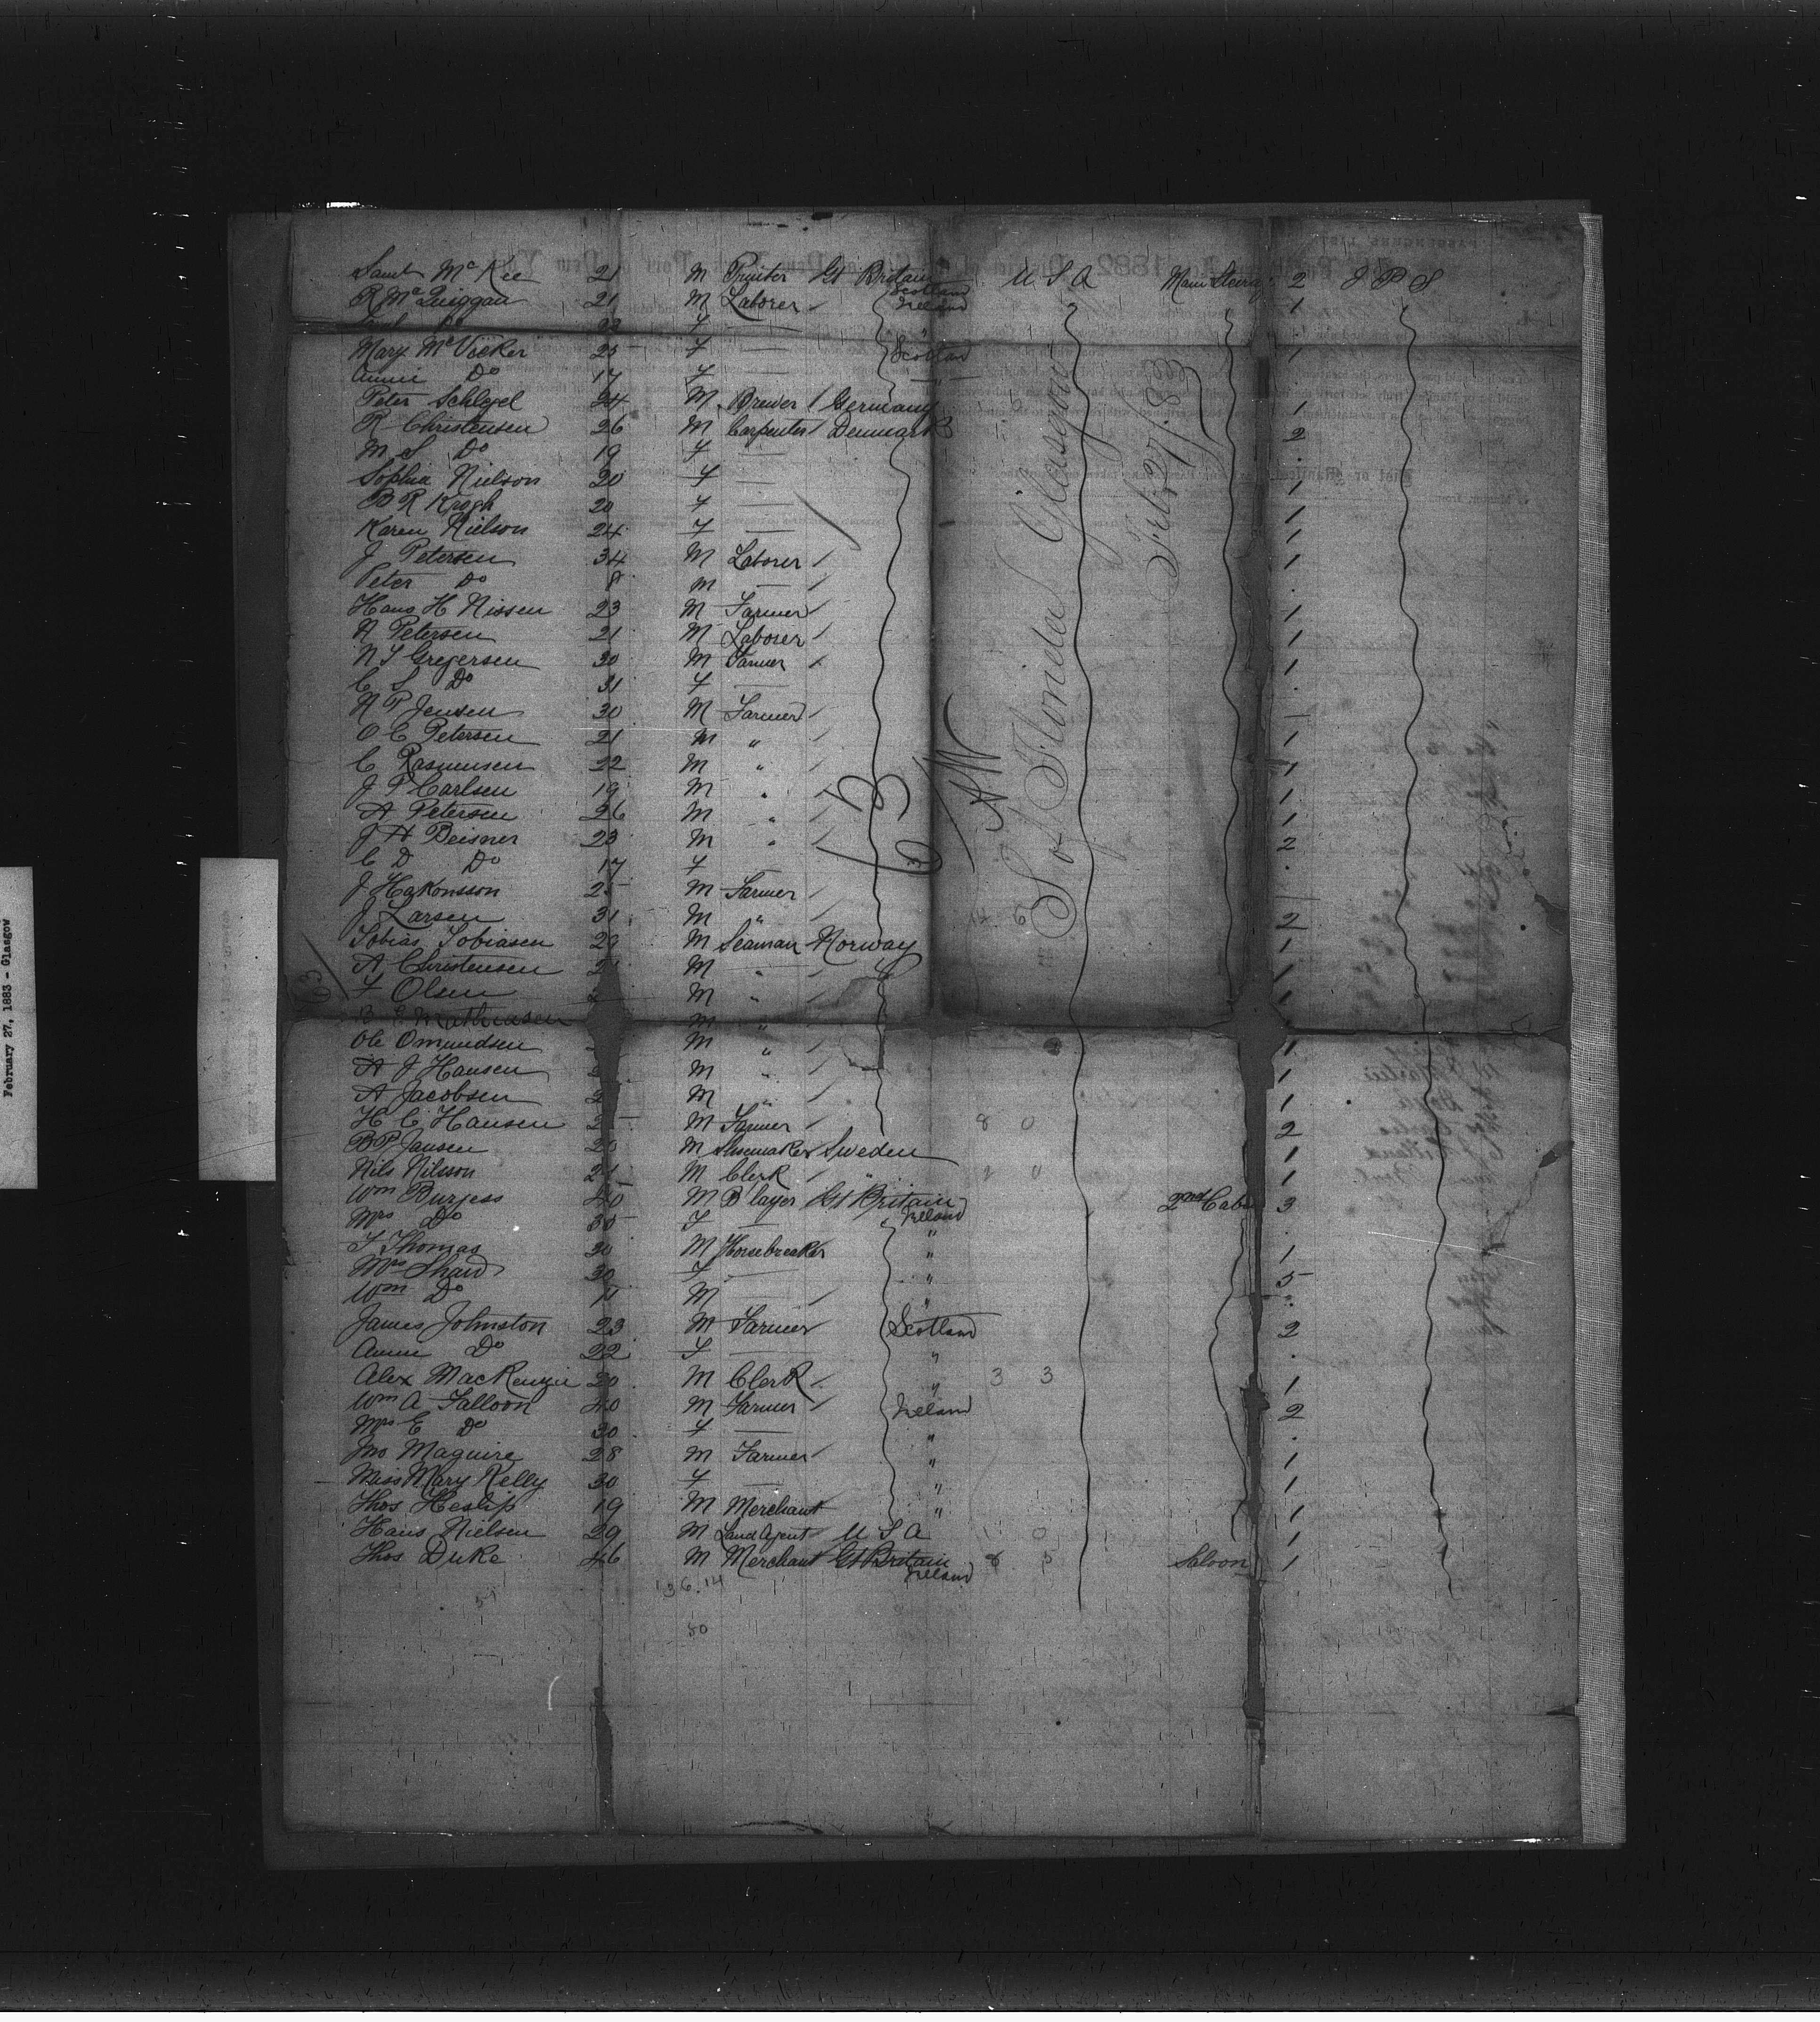 Saml McKee 21 M Printer Gt Britain Scotland U S A Main Steerag 2 J P S
R McQuiggan 21 M Laborer Ireland 1
Do 22 F — "
Mary McVicker 25 F — Scotland 1
Annie Do 17 F — "
Peter Schlegel 24 M Brewer Germany 1
R Christensen 26 M Carpenter Denmark 2
M S Do 19 F —
Sophia Nielson 20 F — 1
B R Krogh 20 F — 1
Karen Nielson 24 F — 1
J Petersen 34 M Laborer 1
Peter Do 8 M —
Hans H Nissen 23 M Farmer 1
N Petersen 21 M Laborer 1
N S Gregersen 30 M Farmer 1
C S Do 31 F —
N P Jensen 30 M Farmer
O C Petersen 21 M " 1
C Rasmussen 22 M " 1
J P Carlsen 19 M " 1
A Petersen 26 M " 1
J H Beisner 23 M " 2
C D Do 17 F
J Hakonsson 25 M Farmer
J Larsen 31 M " 2
Tobias Tobiasen 29 M Seaman Norway 1
A Christensen M " 1
F Olsen M " 1
Mathiasen M "
Ole Omundsen M " 1
A J Hansen M " 1
A Jacobsen M " 1
H C Hansen M Farmer 8 0 2
B P Jansen M Shoemaker Sweden 1
Nils Nilsson 21 M Clerk " 2 0 1
Wm Burgess 40 M B layer Gt Britain Ireland 2nd Cabn 3
Mrs Do 35 F — "
T Thomas 20 M Horsebreaker " 1
Mrs Shaw 30 F — " 5
Wm Do 11 M — "
James Johnston 23 M Farmer Scotland 2
Annie Do 22 F — "
Alex MacKenzie 20 M Clerk " 3 3 1
Wm A Falloon 40 M Farmer Ireland 2
Mrs E Do 30 F — "
Jno Maguire 28 M Farmer " 1
Miss Mary Kelly 30 F — " 1
Thos Heslip 19 M Merchant " 1
Hans Nielsen 29 M Land Agent U S A 1 0 1
Thos Duke 46 M Merchant Gt Britain Ireland 8 5 Saloon 1
36.14
50
63
S of Florida Glasgow
Feb. 27/83
February 27, 1883 - Glasgow